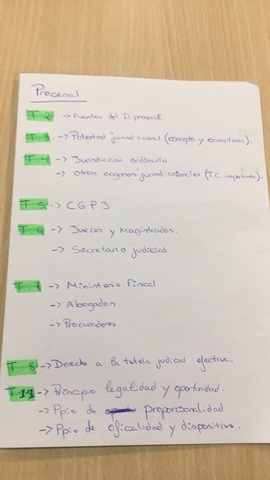 Procesal
T-2 -> Fuentes del D. procesal.
T-3 -> Potestad jurisdiccional (concepto y caracteres).
T-4 -> Jurisdicción ordinaria.
-> Otros órganos jurisdiccionales (T.C. importante).
T-5 -> CGPJ
T-6 -> Jueces y Magistrados.
-> Secretario judicial
T-7 -> Ministerio Fiscal
-> Abogados
-> Procuradores
T-8 -> Derecho a la tutela judicial efectiva.
T-11 -> Principio legalidad y oportunidad.
-> Ppio de proporcionalidad
-> Ppio de oficialidad y dispositivo.